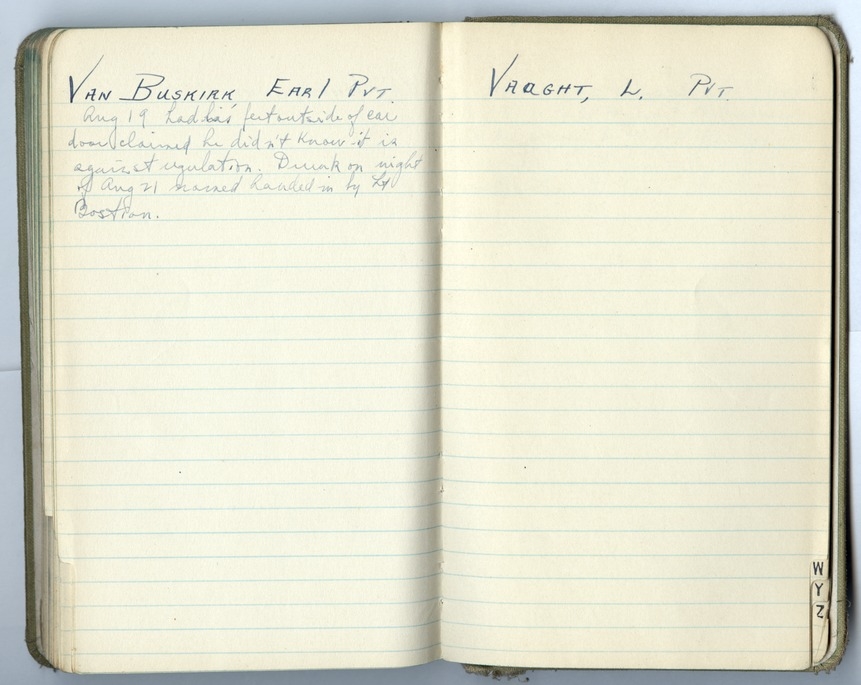 VAN BUSKIRK EARl PVT.
Aug 19 had his feet outside of car
door claimed he didn't know it is
against regulation. Drunk on night
of Aug 21 named handed in by Lt
Bostian.
VAUGHT, L. PVT.
W
Y
Z